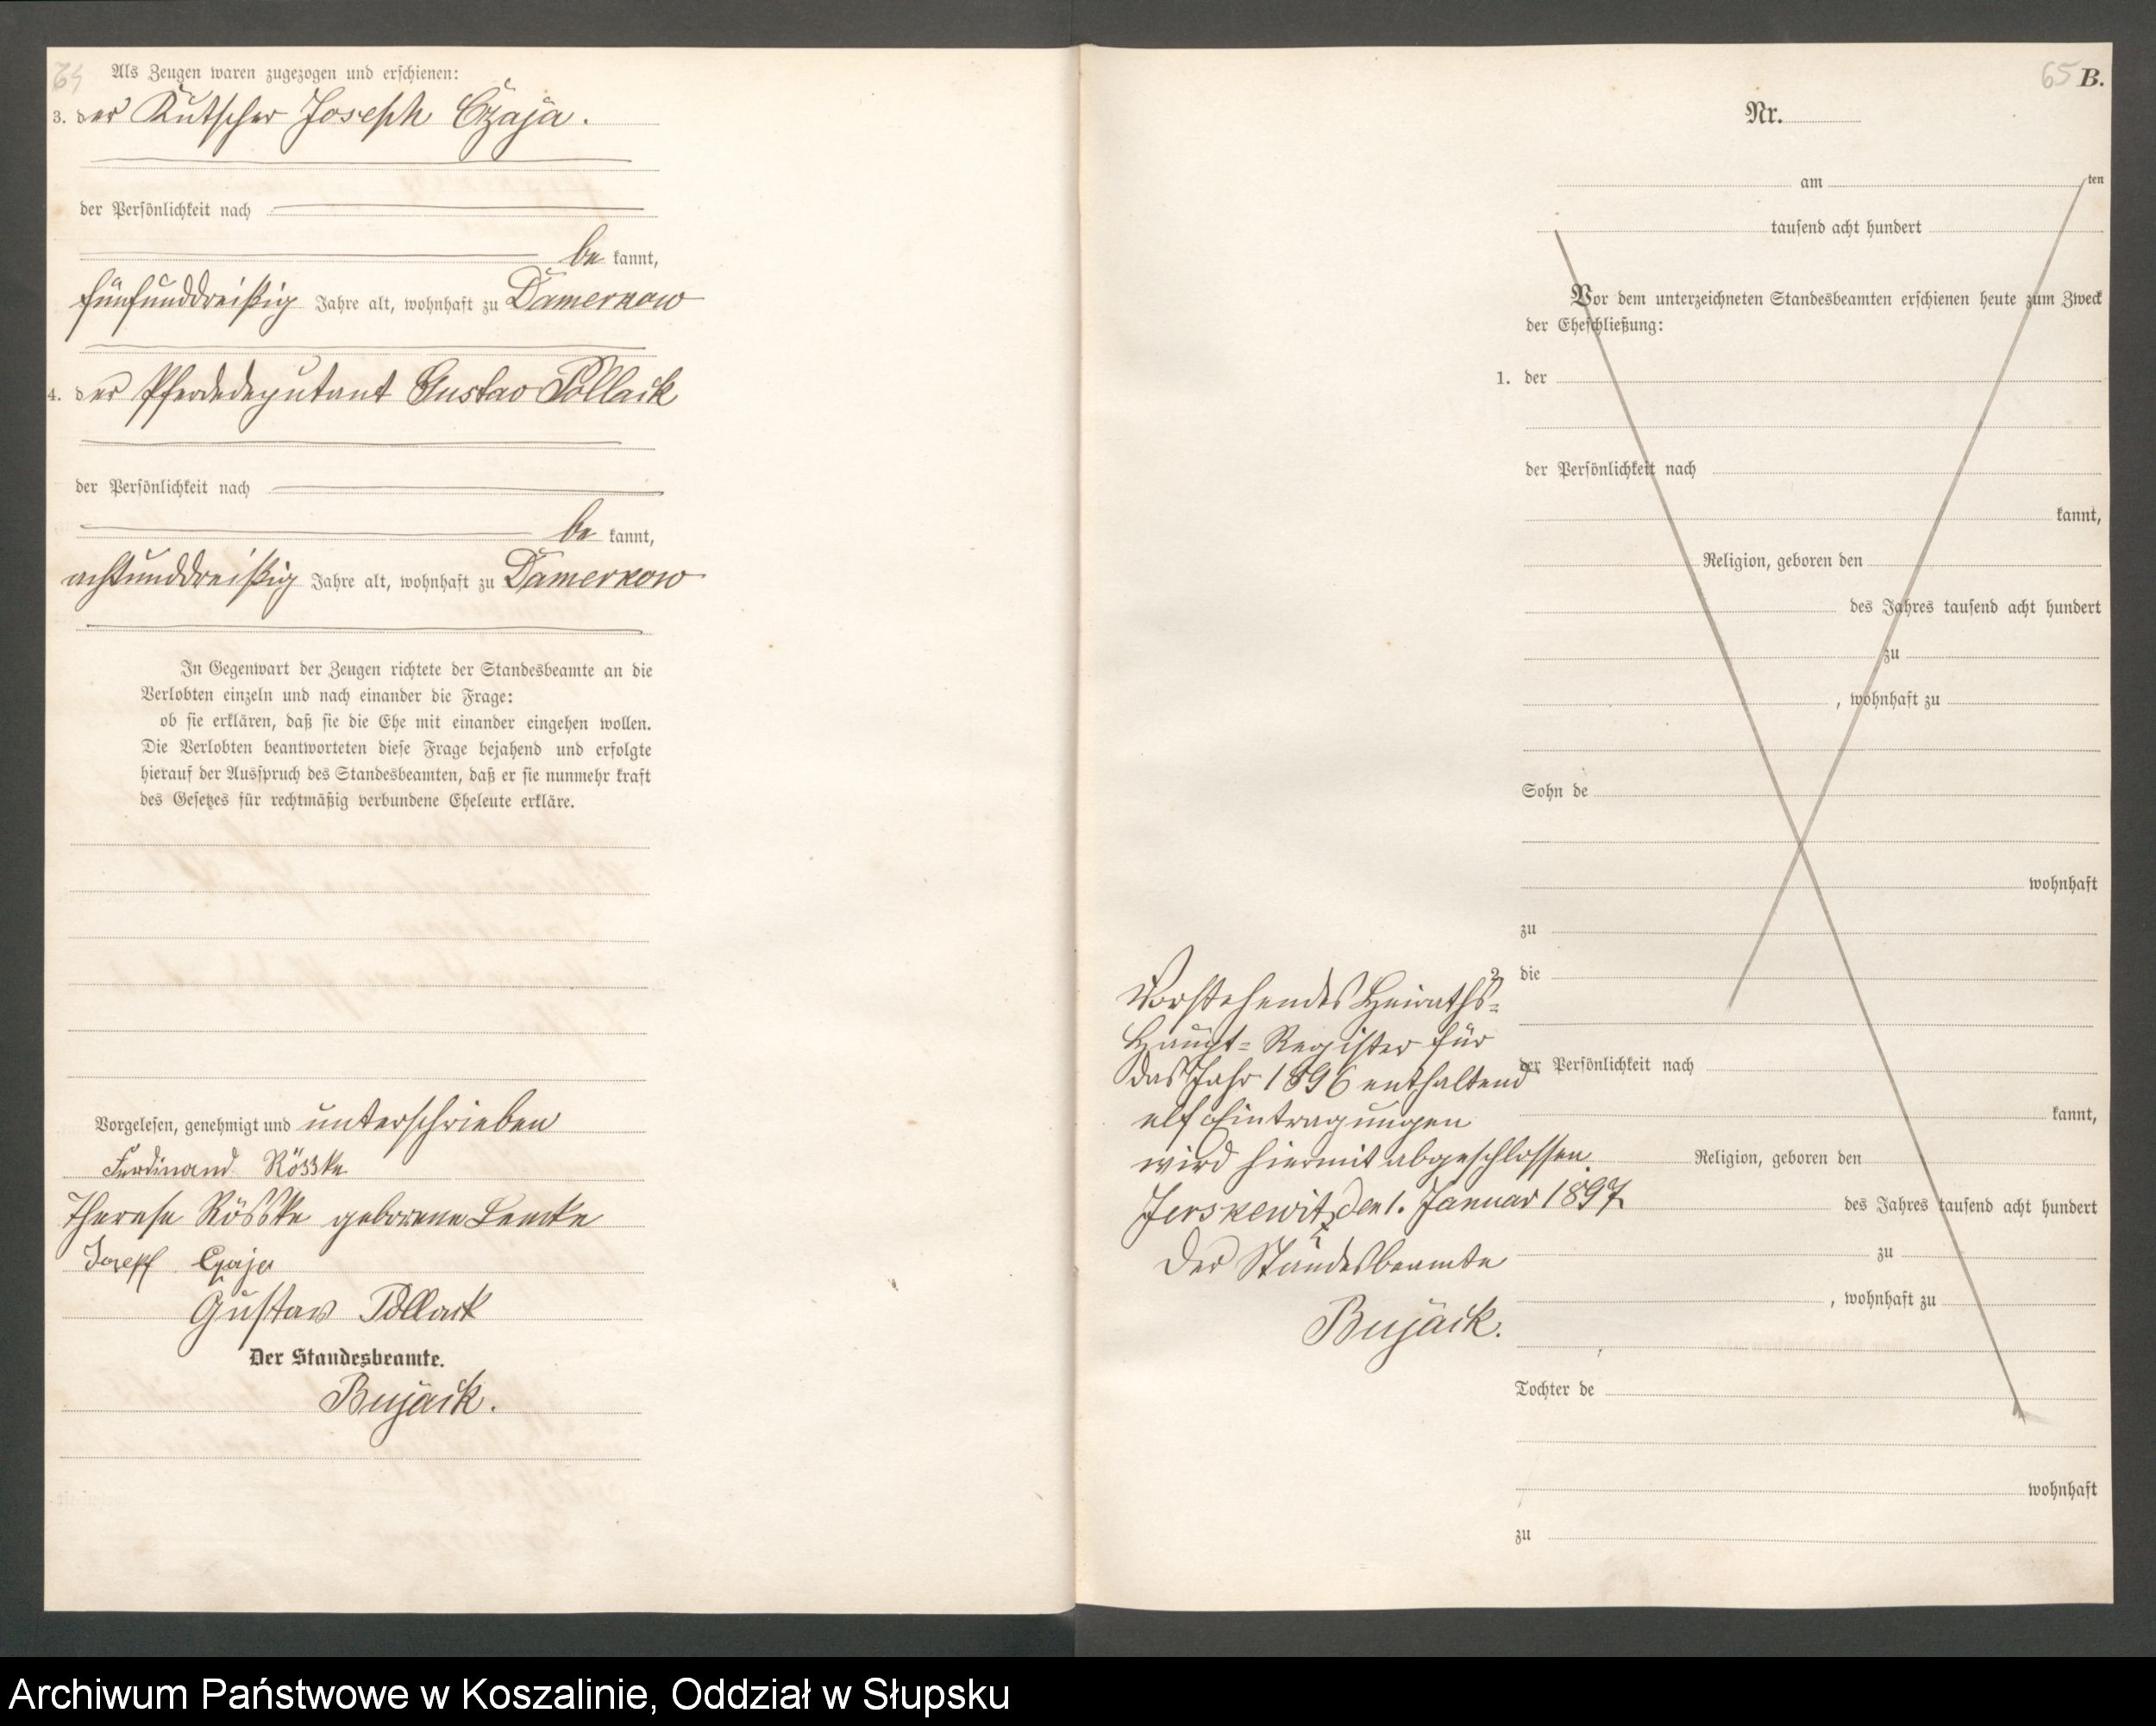 64
Als Zeugen waren zugezogen und erschienen:
3. der Kutscher Joseph Czaja.
der Persönlichkeit nach
be kannt,
fünfunddreißig Jahre alt, wohnhaft zu Damerkow
4. der Pferdedeputant Gustav Pollack
der Persönlichkeit nach
be kannt,
achtunddreißig Jahre alt, wohnhaft zu Damerkow
In Gegenwart der Zeugen richtete der Standesbeamte an die
Verlobten einzeln und nach einander die Frage:
ob sie erklären, daß sie die Ehe mit einander eingehen wollen.
Die Verlobten beantworteten diese Frage bejahend und erfolgte
hierauf der Ausspruch des Standesbeamten, daß er sie nunmehr kraft
des Gesetzes für rechtmäßig verbundene Eheleute erkläre.
Vorgelesen, genehmigt und unterschrieben
Ferdinand Rösske
Therese Rösske geborene Lemke
Josepf Czaja
Gustav Pollack
Der Standesbeamte.
Bujack.
65 B.
Nr.
am ten
tausend acht hundert
Vor dem unterzeichneten Standesbeamten erschienen heute zum Zweck
der Eheschließung:
1. der
der Persönlichkeit nach
kannt,
Religion, geboren den
des Jahres tausend acht hundert
zu
, wohnhaft zu
Sohn de
wohnhaft
zu
2. die
der Persönlichkeit nach
kannt,
Religion, geboren den
des Jahres tausend acht hundert
zu
, wohnhaft zu
Tochter de
wohnhaft
zu
Vorstehendes Heiraths-
Haupt-Register für
das Jahr 1896 enthaltend
elf Eintragungen
wird hiermit abgeschlossen.
Jerskewitz, den 1. Januar 1897.
Der Standesbeamte
Bujack.
Archiwum Państwowe w Koszalinie, Oddział w Słupsku